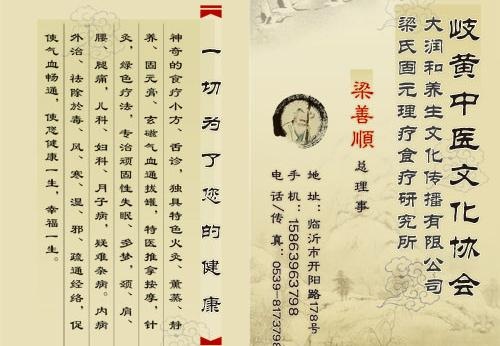 岐黄中医文化协会
大润和养生文化传播有限公司
梁氏固元理疗食疗研究所
梁善順 总理事
地 址：临沂市开阳路178号
手 机：15863963798
电 话/传 真：0539-8173798
一切为了您的健康
神奇的食疗小方、舌诊，独具特色火灸、薰蒸、静
养、固元膏、玄磁气血通拔罐，特医推拿按摩，针
灸，绿色疗法，专治顽固性失眠、多梦，颈、肩、
腰、腿痛，儿科、妇科、月子病，疑难杂病。内病
外治、祛除於毒、风、寒、湿、邪、疏通经络，促
使气血畅通，使您健康一生，幸福一生。